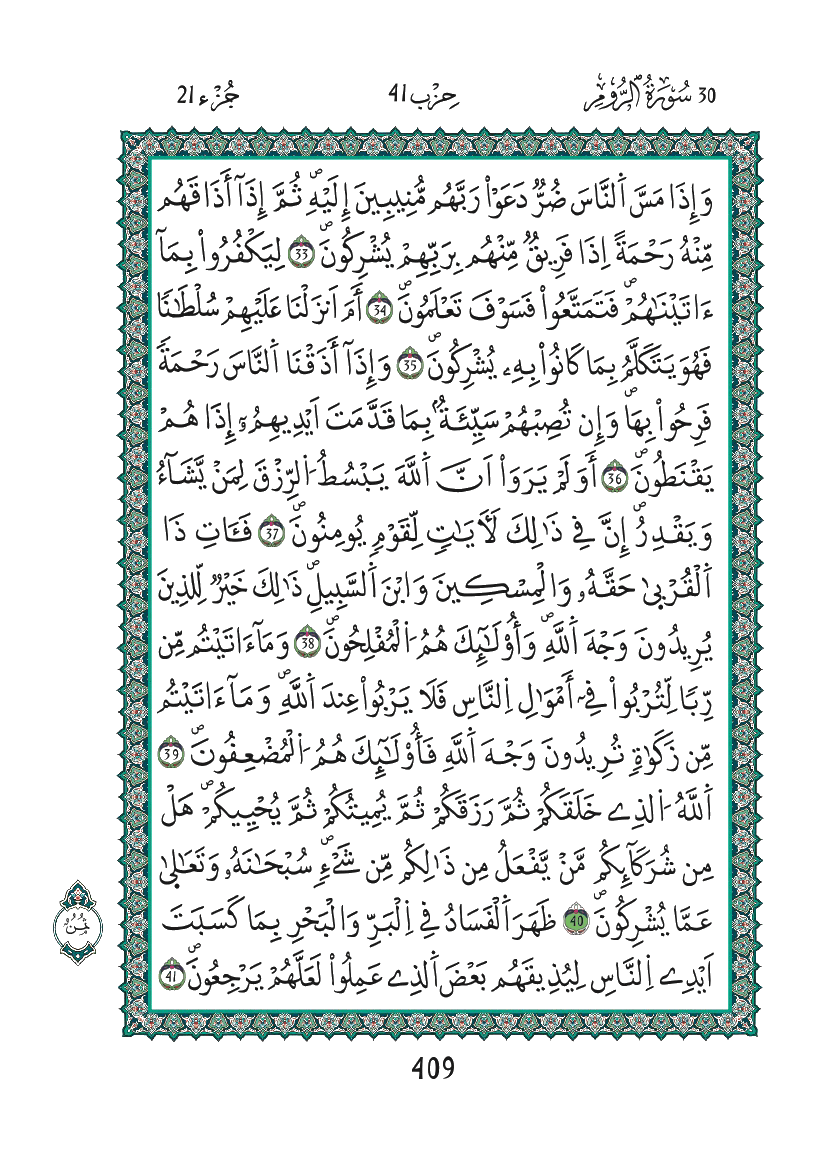 30 سُورَةُ اُ۬لرُّومِ
حِزْب 41
جُزْء 21
وَإِذَا مَسَّ اَ۬لنَّاسَ ضُرّٞ دَعَوْاْ رَبَّهُم مُّنِيبِينَ إِلَيْهِۖ ثُمَّ إِذَآ أَذَاقَهُم
مِّنْهُ رَحْمَةً اِذَا فَرِيقٞ مِّنْهُم بِرَبِّهِمْ يُشْرِكُونَۖ 33 لِيَكْفُرُواْ بِمَآ
ءَاتَيْنَٰهُمْۖ فَتَمَتَّعُواْ فَسَوْفَ تَعْلَمُونَۖ 34 أَمَ اَنزَلْنَا عَلَيْهِمْ سُلْطَٰنٗا
فَهُوَ يَتَكَلَّمُ بِمَا كَانُواْ بِهِۦ يُشْرِكُونَۖ 35 وَإِذَآ أَذَقْنَا اَ۬لنَّاسَ رَحْمَةٗ
فَرِحُواْ بِهَاۖ وَإِن تُصِبْهُمْ سَيِّئَةُۢ بِمَا قَدَّمَتَ اَيْدِيهِمُۥٓ إِذَا هُمْ
يَقْنَطُونَۖ 36 أَوَلَمْ يَرَوَاْ اَنَّ اَ۬للَّهَ يَبْسُطُ اُ۬لرِّزْقَ لِمَنْ يَّشَآءُ
وَيَقْدِرُۖ إِنَّ فِے ذَٰلِكَ لَأٓيَٰتٖ لِّقَوْمٖ يُومِنُونَۖ 37 فَـَٔاتِ ذَا
اَ۬لْقُرْبۭيٰ حَقَّهُۥ وَالْمِسْكِينَ وَابْنَ اَ۬لسَّبِيلِۖ ذَٰلِكَ خَيْرٞ لِّلذِينَ
يُرِيدُونَ وَجْهَ اَ۬للَّهِۖ وَأُوْلَٰٓئِكَ هُمُ اُ۬لْمُفْلِحُونَۖ 38 وَمَآ ءَاتَيْتُم مِّن
رِّبٗا لِّتُرْبُواْ فِےٓ أَمْوَٰلِ اِ۬لنَّاسِ فَلَا يَرْبُواْ عِندَ اَ۬للَّهِۖ وَمَآ ءَاتَيْتُم
مِّن زَكَوٰةٖ تُرِيدُونَ وَجْهَ اَ۬للَّهِ فَأُوْلَٰٓئِكَ هُمُ اُ۬لْمُضْعِفُونَۖ 39
اَ۬للَّهُ اُ۬لذِے خَلَقَكُمْ ثُمَّ رَزَقَكُمْ ثُمَّ يُمِيتُكُمْ ثُمَّ يُحْيِيكُمْۖ هَلْ
مِن شُرَكَآئِكُم مَّنْ يَّفْعَلُ مِن ذَٰلِكُم مِّن شَےْءٖۖ سُبْحَٰنَهُۥ وَتَعَٰل۪يٰ
عَمَّا يُشْرِكُونَۖ 40 ظَهَرَ اَ۬لْفَسَادُ فِے اِ۬لْبَرِّ وَالْبَحْرِ بِمَا كَسَبَتَ
اَيْدِے اِ۬لنَّاسِ لِيُذِيقَهُم بَعْضَ اَ۬لذِے عَمِلُواْ لَعَلَّهُمْ يَرْجِعُونَۖ 41
ثُمُنُ
409